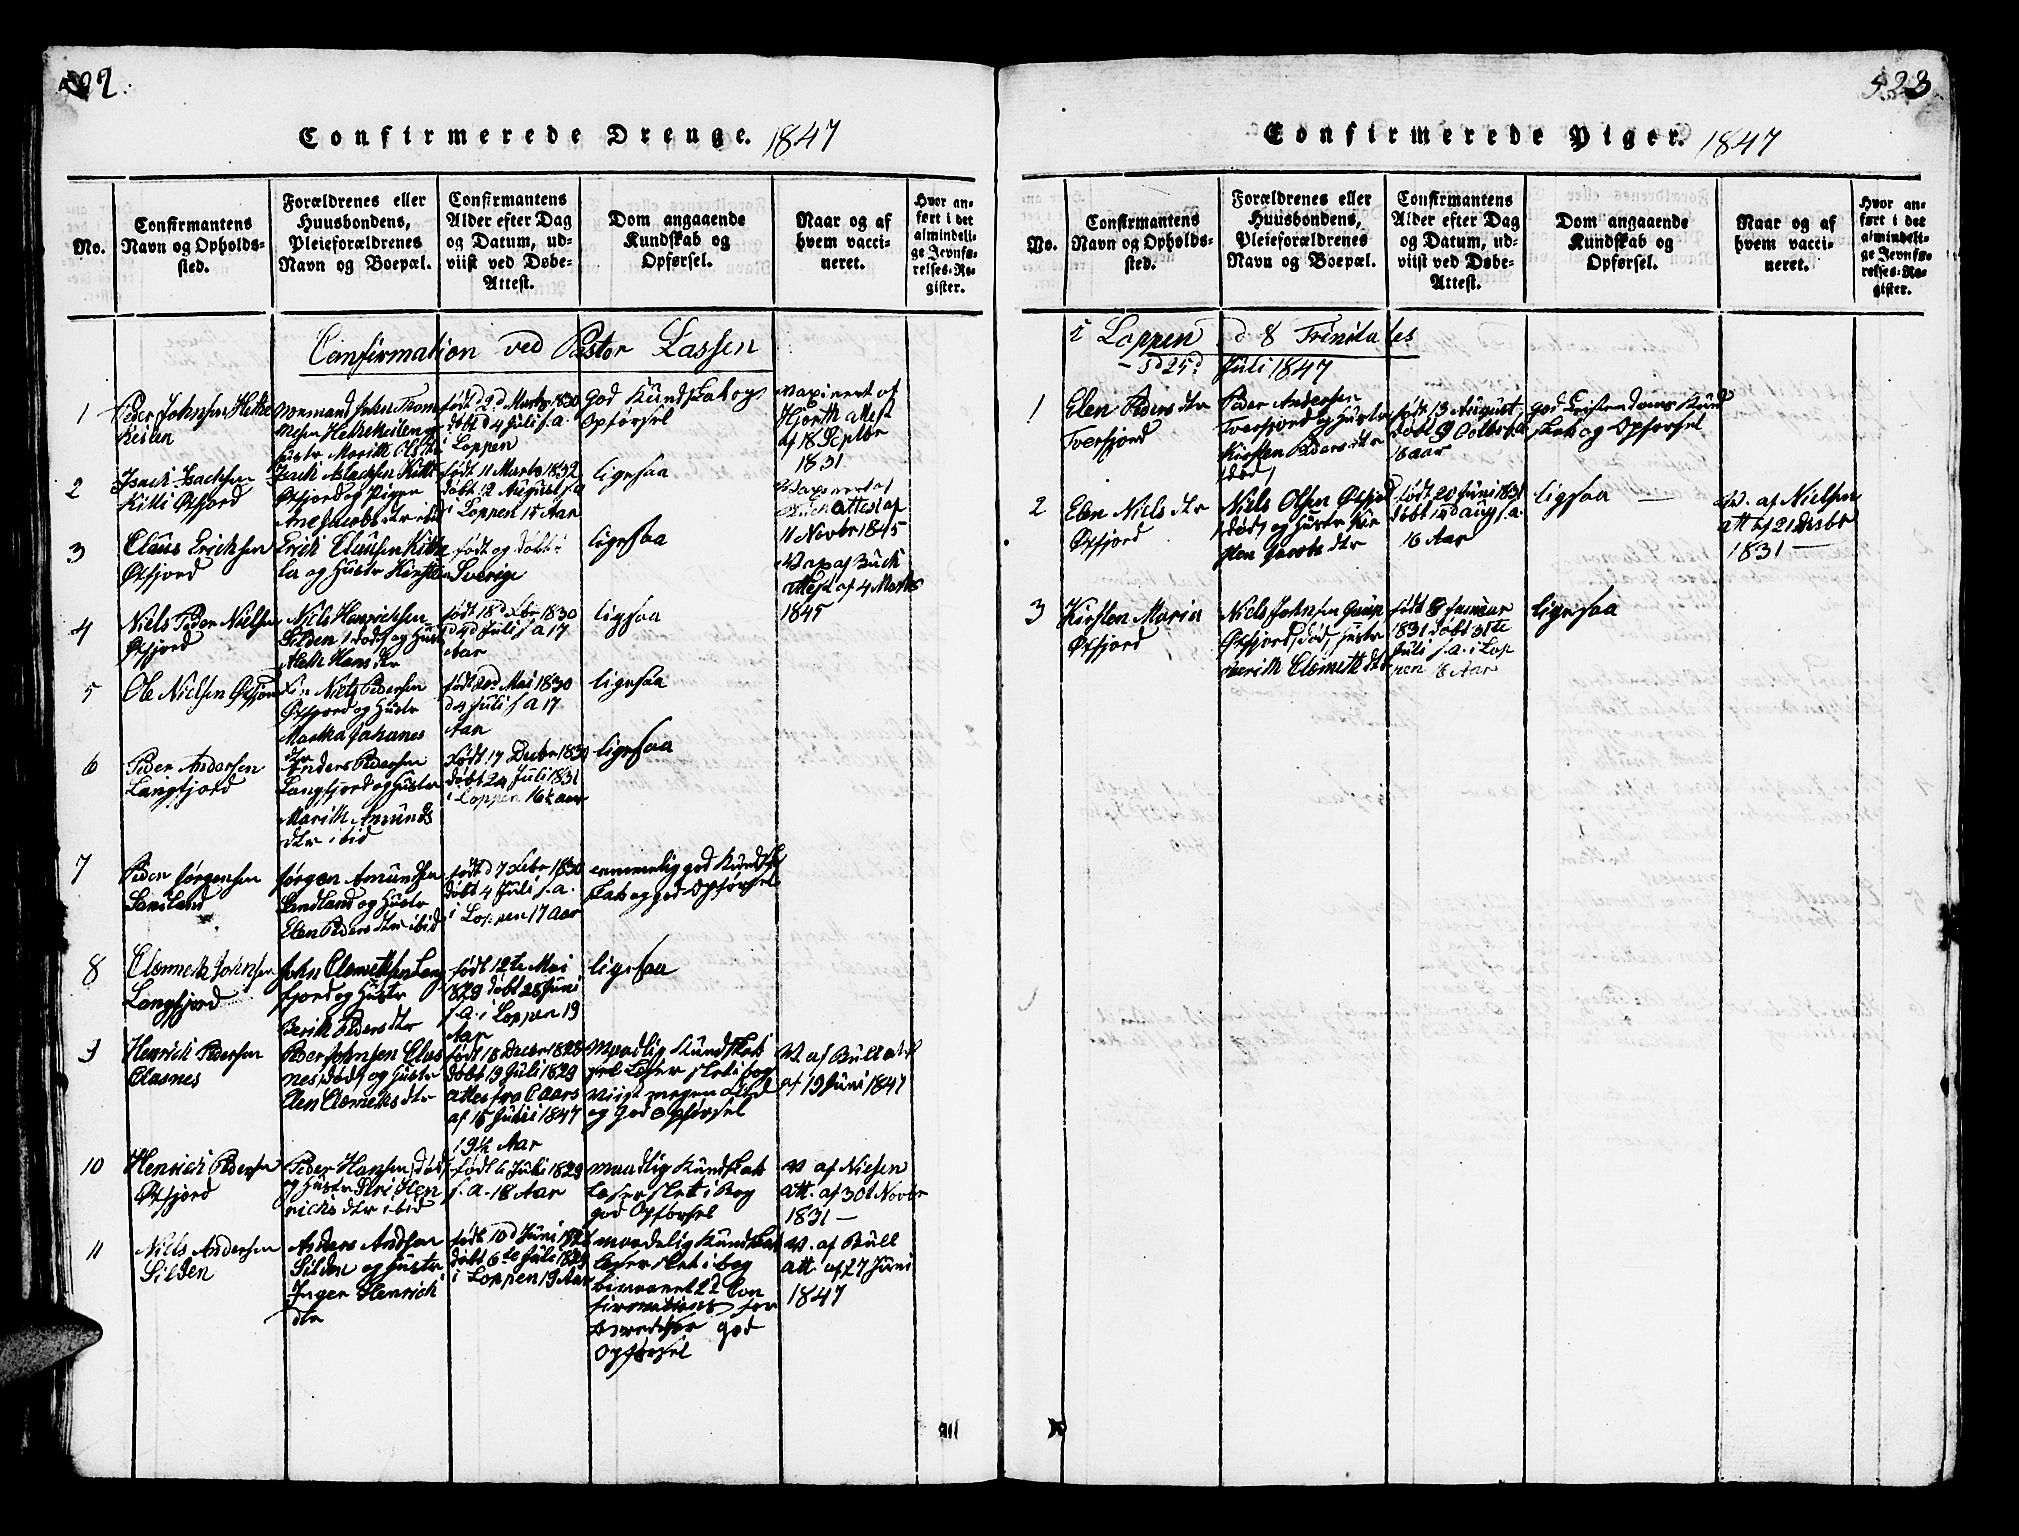 522.
Confirmerede Drenge. 1847
No.
Confirmantens
Navn og Opholds-
sted.
Forældrenes eller
Huusbondens,
Pleieforældrenes
Navn og Boepæl.
Confirmantens
Alder efter Dag
og Datum, ud-
viist ved Døbe-
Attest.
Dom angaaende
Kundskab og
Opførsel.
Naar og af
hvem vacci-
neret.
Hvor an-
ført i det
almindeli-
ge Jevnfø-
relses-Re-
gister.
Confirmation ved Pastor Lassen
1
Peder Johnsen
Normand John Thom
mesen
Hustr Marith Ols dtr
født d 2d Marts 1830
døbt d 4 Juli s.a.
i Loppen
God Kundskab og
Opførsel
Vaxineret af
Hjorth attest
af 18 Septbr
1831
2
Isach Isachsen
Kitti Øxfjord
Isach Aslachsen Kitti
Øxfjord og Pigen
født 11 Marts 1832
døbt 12 August s.a
i Loppen 15 Aar
ligesaa
attest af
11 Novbr 1845
3
Claus Erichsen
Øxfjord
Erich Clausen
og Hustr Kirsten
født og døbt i
Sverige
ligesaa
Vax af Buck
attest af 4 Marts
1845
4
Niels Peder Nielsen
Øxfjord
Niels Henrichsen
Silden død og Hustr
Hans dtr
født 18 d Febr 1830
d 4d Juli s a 17
Aar
ligesaa
5
Ole Nielsen Øxfjord
Niels Pedersen
Øxfjord og Hustr
Martha Johanes
dtr
født 20d Mai 1830
d 4 Juli s a 17
Aar
ligesaa
6
Peder Andersen
Langfjord
Anders Pedersen
Langfjord og Hustr
Marith Amunds
dtr ibid
født 17 Decbr 1830
døbt 24 Juli 1831
i Loppen 16½ aar
ligesaa
7
Peder Jørgensen
Sandland
Jørgen Amundsen
Sandland og Hustr
Elen Peders dtr ibid
født d 7 Febr 1830
døbt 4 Juli s.a.
i Loppen 17 Aar
nemmelig god Kundsk
skab og god Opførsel
8
Clemeth Johnsen
Langfjord
John Clemethsen Lang
fjord og Hustr
Berith Peders dtr
født 12te Mai
1829 døbt 28 Juni
s.a. i Loppen 19
Aar
ligesaa
9
Henrich Pedersen
Clasnes
Peder Johnsen Clas
nes død og Hustr
Elen Clemeths dtr
født 18 Decbr 1828
døbt 19 Juli 1829
af 15 Julii 1847
19¼ Aar
Maadlig Kundskab
læser slet i bog
viist megen flid
og God Opførsel
V af Bull att
af 19 Juni 1847
10
Henrich Pedersen
Øxfjord
Peder Hansen død
og Hustr Hen
richs dtr ibid
født 6 Juli 1829
s.a. 18 Aar
maadlig Kundskab
Læser slet i Bog
god Opførsel
V af Nielsen
att. af 30t Novbr
1831 —
11
Niels Andersen
Silden
Anders Andsen
Silden og Hustr
Inger Henrich
dtr
født 10 d Juni 1828
døbt 6te Juli 1828
i Loppen 19 Aar
maadelig Kundskab
læser slet i bog
bivaanet 2d Con
firmations for
beredelser god
Opførsel
V. af Bull
att. af 27 Juni
1847
523
Confirmerede Piger. 1847
No.
Confirmantens
Navn og Opholds-
sted.
Forældrenes eller
Huusbondens,
Pleieforældrenes
Navn og Boepæl.
Confirmantens
Alder efter Dag
og Datum, ud-
viist ved Døbe-
Attest.
Dom angaaende
Kundskab og
Opførsel.
Naar og af
hvem vacci-
neret.
Hvor an-
ført i det
almindeli-
ge Jevnfø-
relses-Re-
gister.
i Loppen d 8 Trinitates
d 25d Juli 1847
1
Elen Peders dtr
Tverfjord
Peder Andersen
Tverfjord og Hustr
Kirsten Peders dtr
død
født 13 August
døbt 9 Octbr s.a
16 aar
god Cristendoms Kund
skab og Opførsel
2
Elen Niels dtr
Øxfjord
Niels Olsen Øxfjord
død og Hustr Kir
sten Jacobs dtr
født 20 Juni 1831
døbt 14d aug s.a.
16 Aar
ligesaa —
V. af Nielsen
att af 21 Desbr
1831 —
3
Kirsten Maria
Øxfjord
Niels Johnsen Gaup
Øxfjord død Hustr
Berith Clemeth dtr
født 8 Januar
1831 døbt 31te
Juli s.a. i Lop
pen 16 Aar
ligesaa